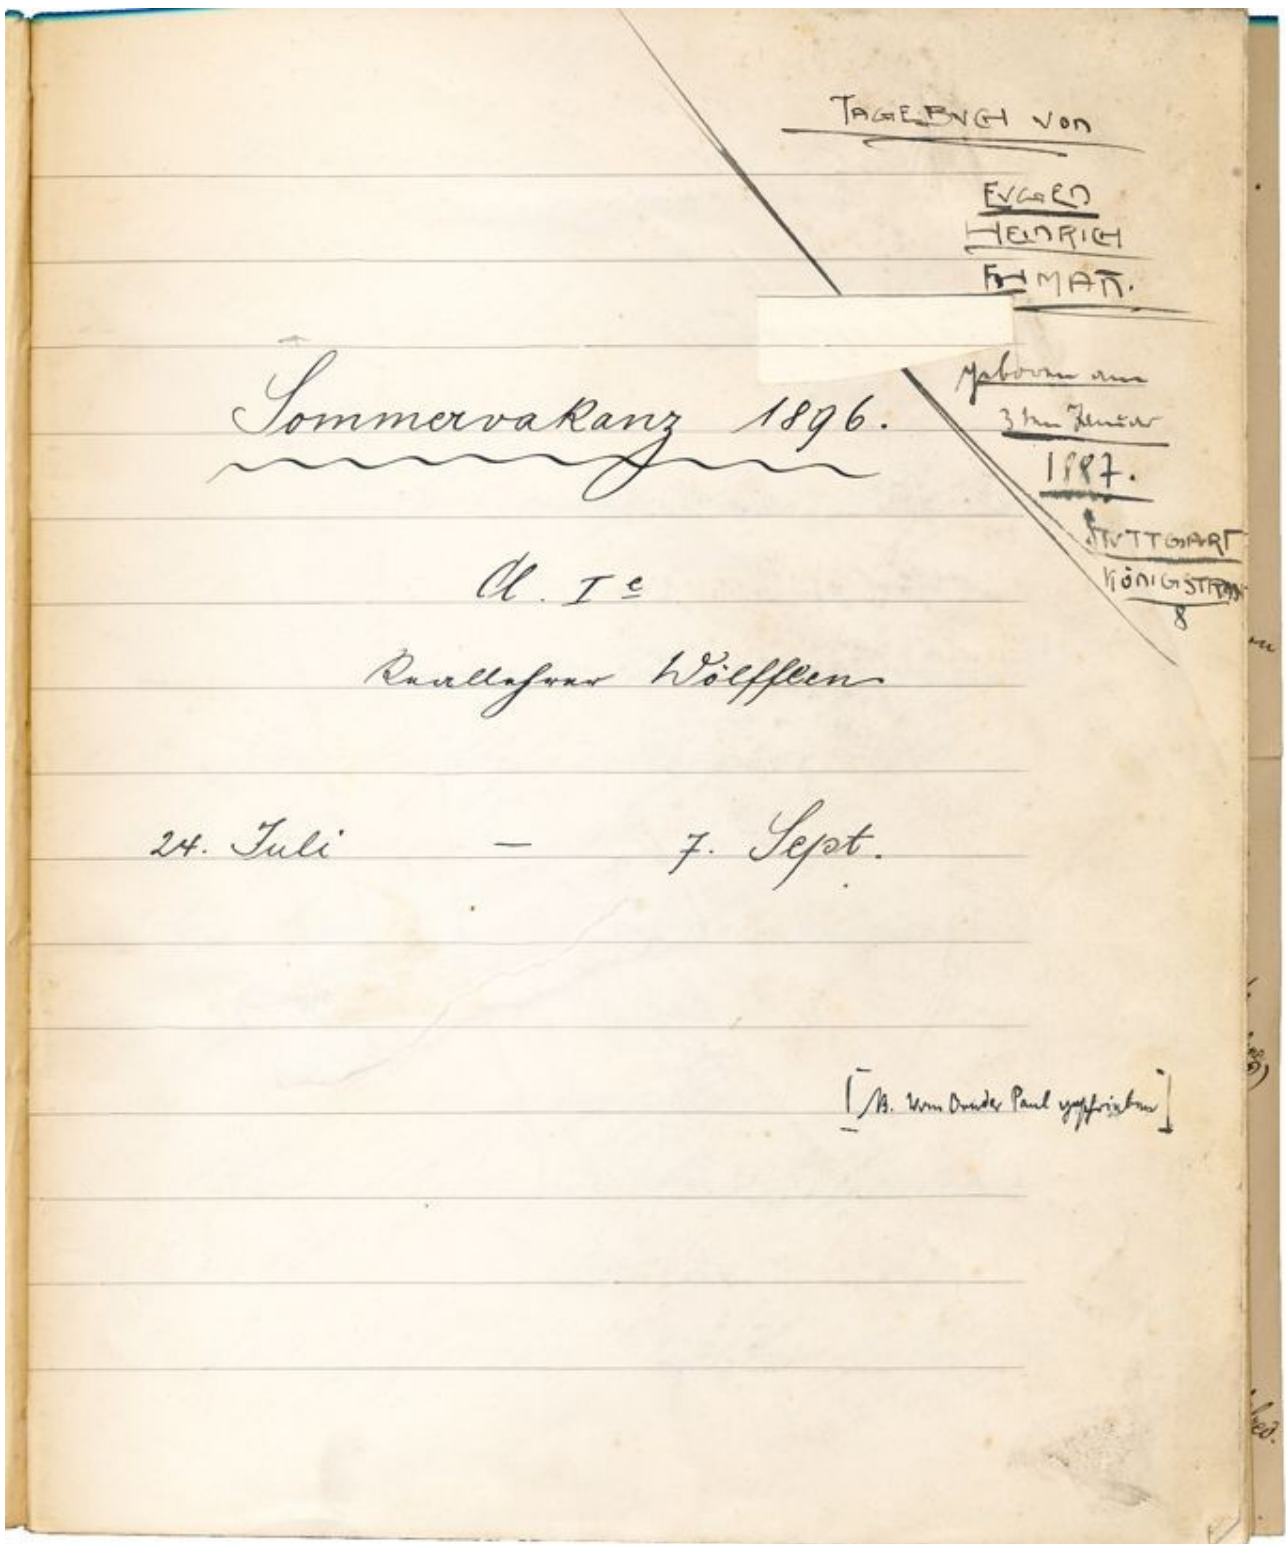 TAGEBUCH VON
EUGEN
HEINRICH
EHMAN̄.
geboren am
3ten Januar
1887.
STUTTGART
KÖNIGSTRASS
8
Sommervakanz 1896.
Cl. Ic
Reallehrer Wölfflen
24. Juli — 7. Sept.
[ B. vom Bruder Paul geschrieben ]